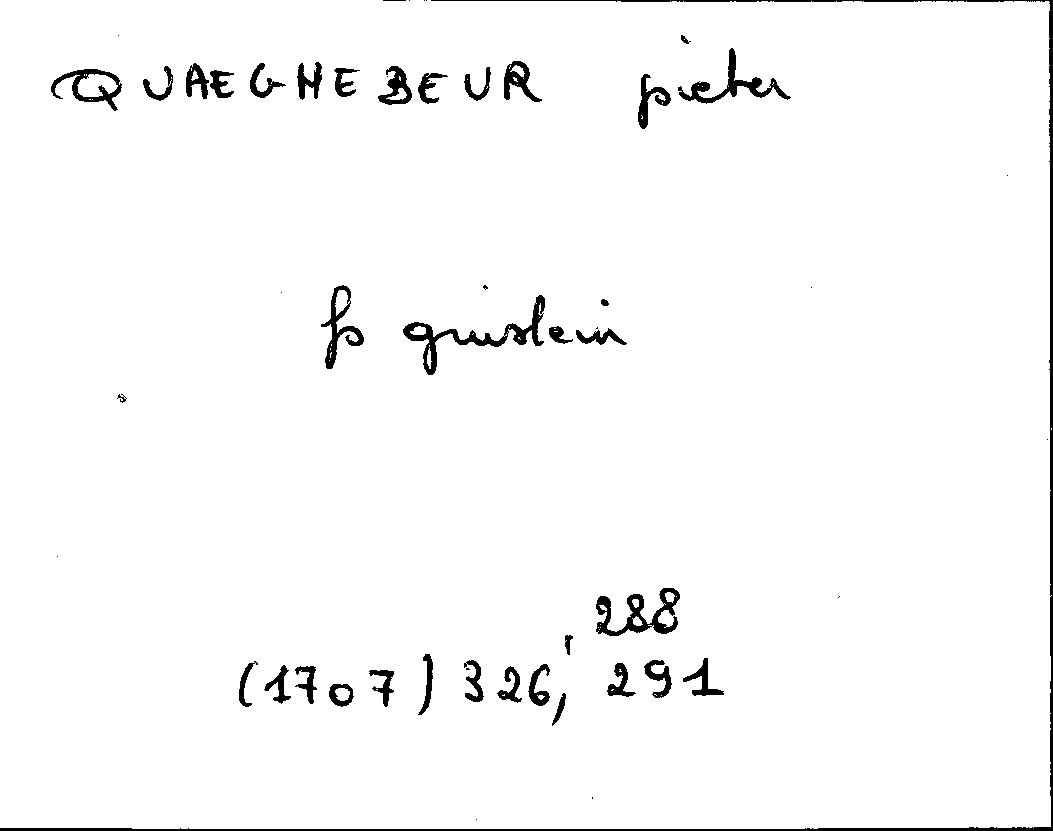 QUAEGHEBEUR pieter
fs guislein
288
(1707) 326, 291